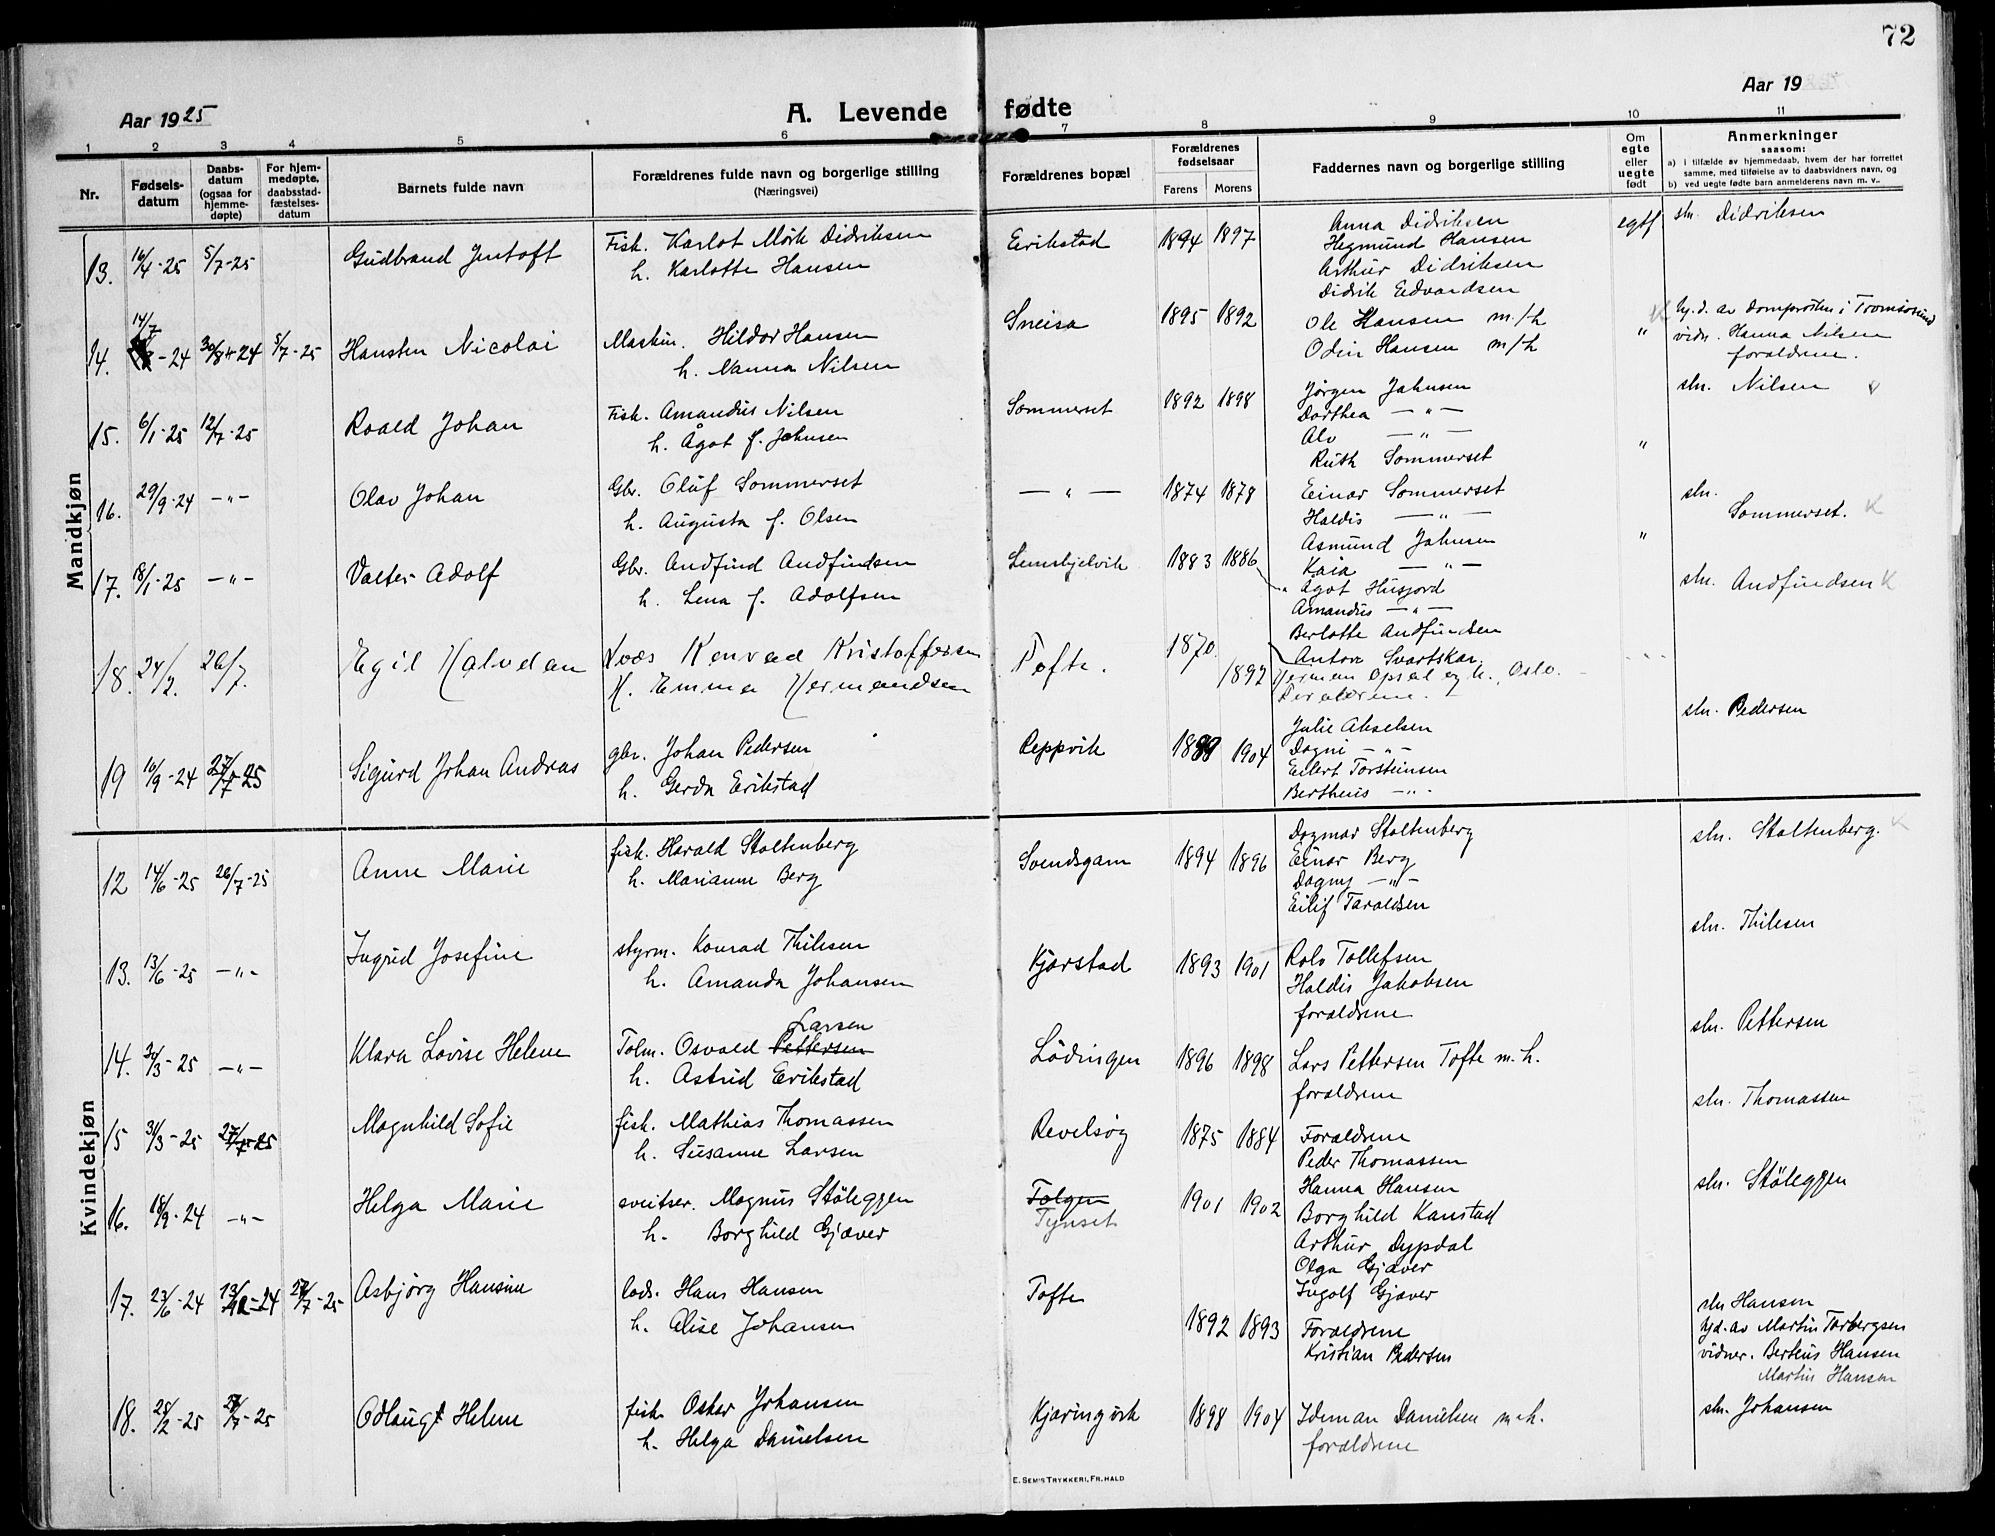 72
Aar 1925
A. Levende fødte
Aar 19
1 2 3 4 5 6 7 8 9 10 11
Nr.
Fødsels-
datum
Daabs-
datum
(ogsaa for
hjemme-
døpte)
For hjem-
medøpte,
daabsstad-
fæstelses-
datum
Barnets fulde navn
Forældrenes fulde navn og borgerlige stilling
(Næringsvei)
Forældrenes bopæl
Forældrenes
fødselsaar
Farens Morens
Faddernes navn og borgerlige stilling
Om
egte
eller
uegte
født
Anmerkninger
saasom:
a) i tilfælde av hjemmedaab, hvem der har forrettet
samme, med tilføielse av to daabsvidners navn, og
b) ved uegte fødte barn anmelderens navn m. v.
Mandkjøn
13. 16/4-25 5/7-25 Gudbrand Jentoft
Fisk. Karlot Mörk Didriksen
h. Karlotte Hansen
Erikstad 1894 1897
Anna Didriksen
Hegmund Hansen
Arthur Didriksen
Didrik Edvardsen
sln. Didriksen
14. 14/7-24 30/8-24 5/7-25 Hansten Nicolai
Maskin. Hildor Hansen
h. Nanna Nilsen
Sneisa 1895 1892
Ole Hansen m/h
Odin Hansen m/h
"
hj.d. av domprosten i Tromsøsund
vidn. Hanna Nilsen
foraldrene.
15. 6/1-25 12/7-25 Roald Johan
Fisk. Amandus Nilsen
h. Ågot f. Johnsen
Sommerset 1892 1898
Jørgen Johnsen
Dorthea — " —
Alv — " —
Ruth Sommerset
"
sln. Nilsen
16. 29/9-24 —"— Olav Johan
Gbr. Oluf Sommerset
h. Augusta f. Olsen
— " — 1874 1878
Einar Sommerset
Haldis — " —
sln.
Sommerset. K
17. 18/1-25 —"— Valter Adolf
Gbr. Andfind Andfindsen
h. Lena f. Adolfsen
1883 1886
Asmund Johnsen
Kaia — " —
Agot Husjord
Amandus — " —
Berlotte Andfindsen
Anton Svartskar
"
sln. Andfindsen K
18. 24/2. 26/7. Egil Halvdan
Konrad Kristoffersen
H. Emma Hermandsen
Tofte. 1870. 1892
Herman Opsal og h., Oslo.
Foraldrene.
19 10/9-24 27/7-25 Sigurd Johan Andras
gbr. Johan Pedersen
h. Gerda Erikstad
Reppvik 1904
Julie Akselsen
Dagni — " —
Eilert Torsteinsen
Bertheus — " —
sln. Pedersen
Kvindekjøn
12 14/6-25 26/7-25 Anne Marie
fisk. Harald Stoltenberg
h. Marianne Berg
Svendsgam 1894 1896
Dagmar Stoltenberg
Einar Berg
Dagny — " —
Eilif Taraldsen
sln. Stoltenberg. K
13. 13/6-25 —"— Ingrid Josefine
styrm. Konrad Thilesen
h. Amanda Johansen
Kjørstad 1893 1901
Rolv Tollefsen
Haldis Jakobsen
foraldrene
sln. Thilesen
14. 31/3-25 —"— Klara Lovise Helene
Larsen
Tolm. Osvald Pettersen
h. Astrid Erikstad
Lödingen 1896 1898
Lars Pettersen Tofte m. h.
foraldrene
sln. Pettersen
15 31/3-25 27/7-25 Magnhild Sofie
fisk. Mathias Thomassen
h. Susanne Larsen
Revelsøy 1875 1884
Foraldrene
Peder Thomassen
sln. Thomassen
16. 18/9-24 —"— Helga Marie
sveitser. Magnus Stöleggen
h. Borghild Gjæver
Tolgen
Tynset
1901 1902
Hanna Hansen
Borghild Kanstad
Arthur Dypdal
Olga Gjæver
Ingolf Gjæver
sln. Stöleggen
17. 23/6-24 27/7-25 Asbjörg Hansine
lods. Hans Hansen
h. Alise Johansen
Tofte 1892 1893
Foraldrene
Kristian Pedersen
sln Hansen
hjd. av Martin Torbergsen
vidner. Berteus Hansen
Martin Hansen
18. 25/2-25 27/7-25 Odlaugt Helene
fisk Oskar Johansen
h. Helga Danielsen
1898 1904
Ideman Danielsen m. h.
foraldrene
sln. Johansen
E. SEM'S TRYKKERI, FR.HALD